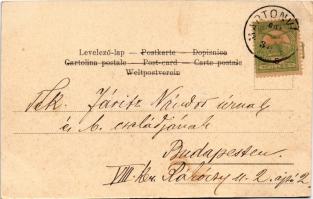 MARTONV
Levelező-lap — Postkarte — Dopisnica
Cartolina postale — Post-card — Carte postale
Weltpostverein
Tek. Járitz Nándor úrnak
és b. családjának
Budapesten.
VIII. ker. Rákóczy u. 2. ajtó 2.